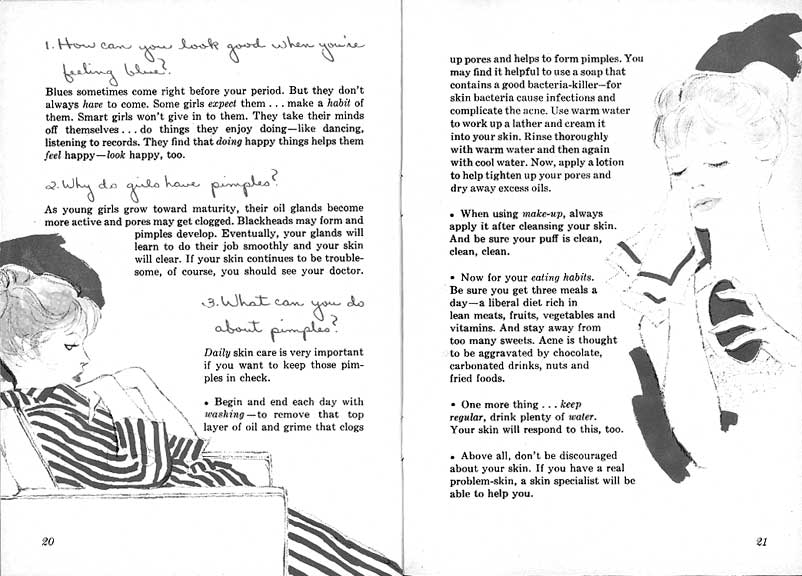 1. How can you look good when you're
feeling blue?
Blues sometimes come right before your period. But they don't
always have to come. Some girls expect them . . . make a habit of
them. Smart girls won't give in to them. They take their minds
off themselves . . . do things they enjoy doing—like dancing,
listening to records. They find that doing happy things helps them
feel happy—look happy, too.
2. Why do girls have pimples?
As young girls grow toward maturity, their oil glands become
more active and pores may get clogged. Blackheads may form and
pimples develop. Eventually, your glands will
learn to do their job smoothly and your skin
will clear. If your skin continues to be trouble-
some, of course, you should see your doctor.
3. What can you do
about pimples?
Daily skin care is very important
if you want to keep those pim-
ples in check.
• Begin and end each day with
washing—to remove that top
layer of oil and grime that clogs
20
up pores and helps to form pimples. You
may find it helpful to use a soap that
contains a good bacteria-killer—for
skin bacteria cause infections and
complicate the acne. Use warm water
to work up a lather and cream it
into your skin. Rinse thoroughly
with warm water and then again
with cool water. Now, apply a lotion
to help tighten up your pores and
dry away excess oils.
• When using make-up, always
apply it after cleansing your skin.
And be sure your puff is clean,
clean, clean.
• Now for your eating habits.
Be sure you get three meals a
day—a liberal diet rich in
lean meats, fruits, vegetables and
vitamins. And stay away from
too many sweets. Acne is thought
to be aggravated by chocolate,
carbonated drinks, nuts and
fried foods.
• One more thing . . . keep
regular, drink plenty of water.
Your skin will respond to this, too.
• Above all, don't be discouraged
about your skin. If you have a real
problem-skin, a skin specialist will be
able to help you.
21